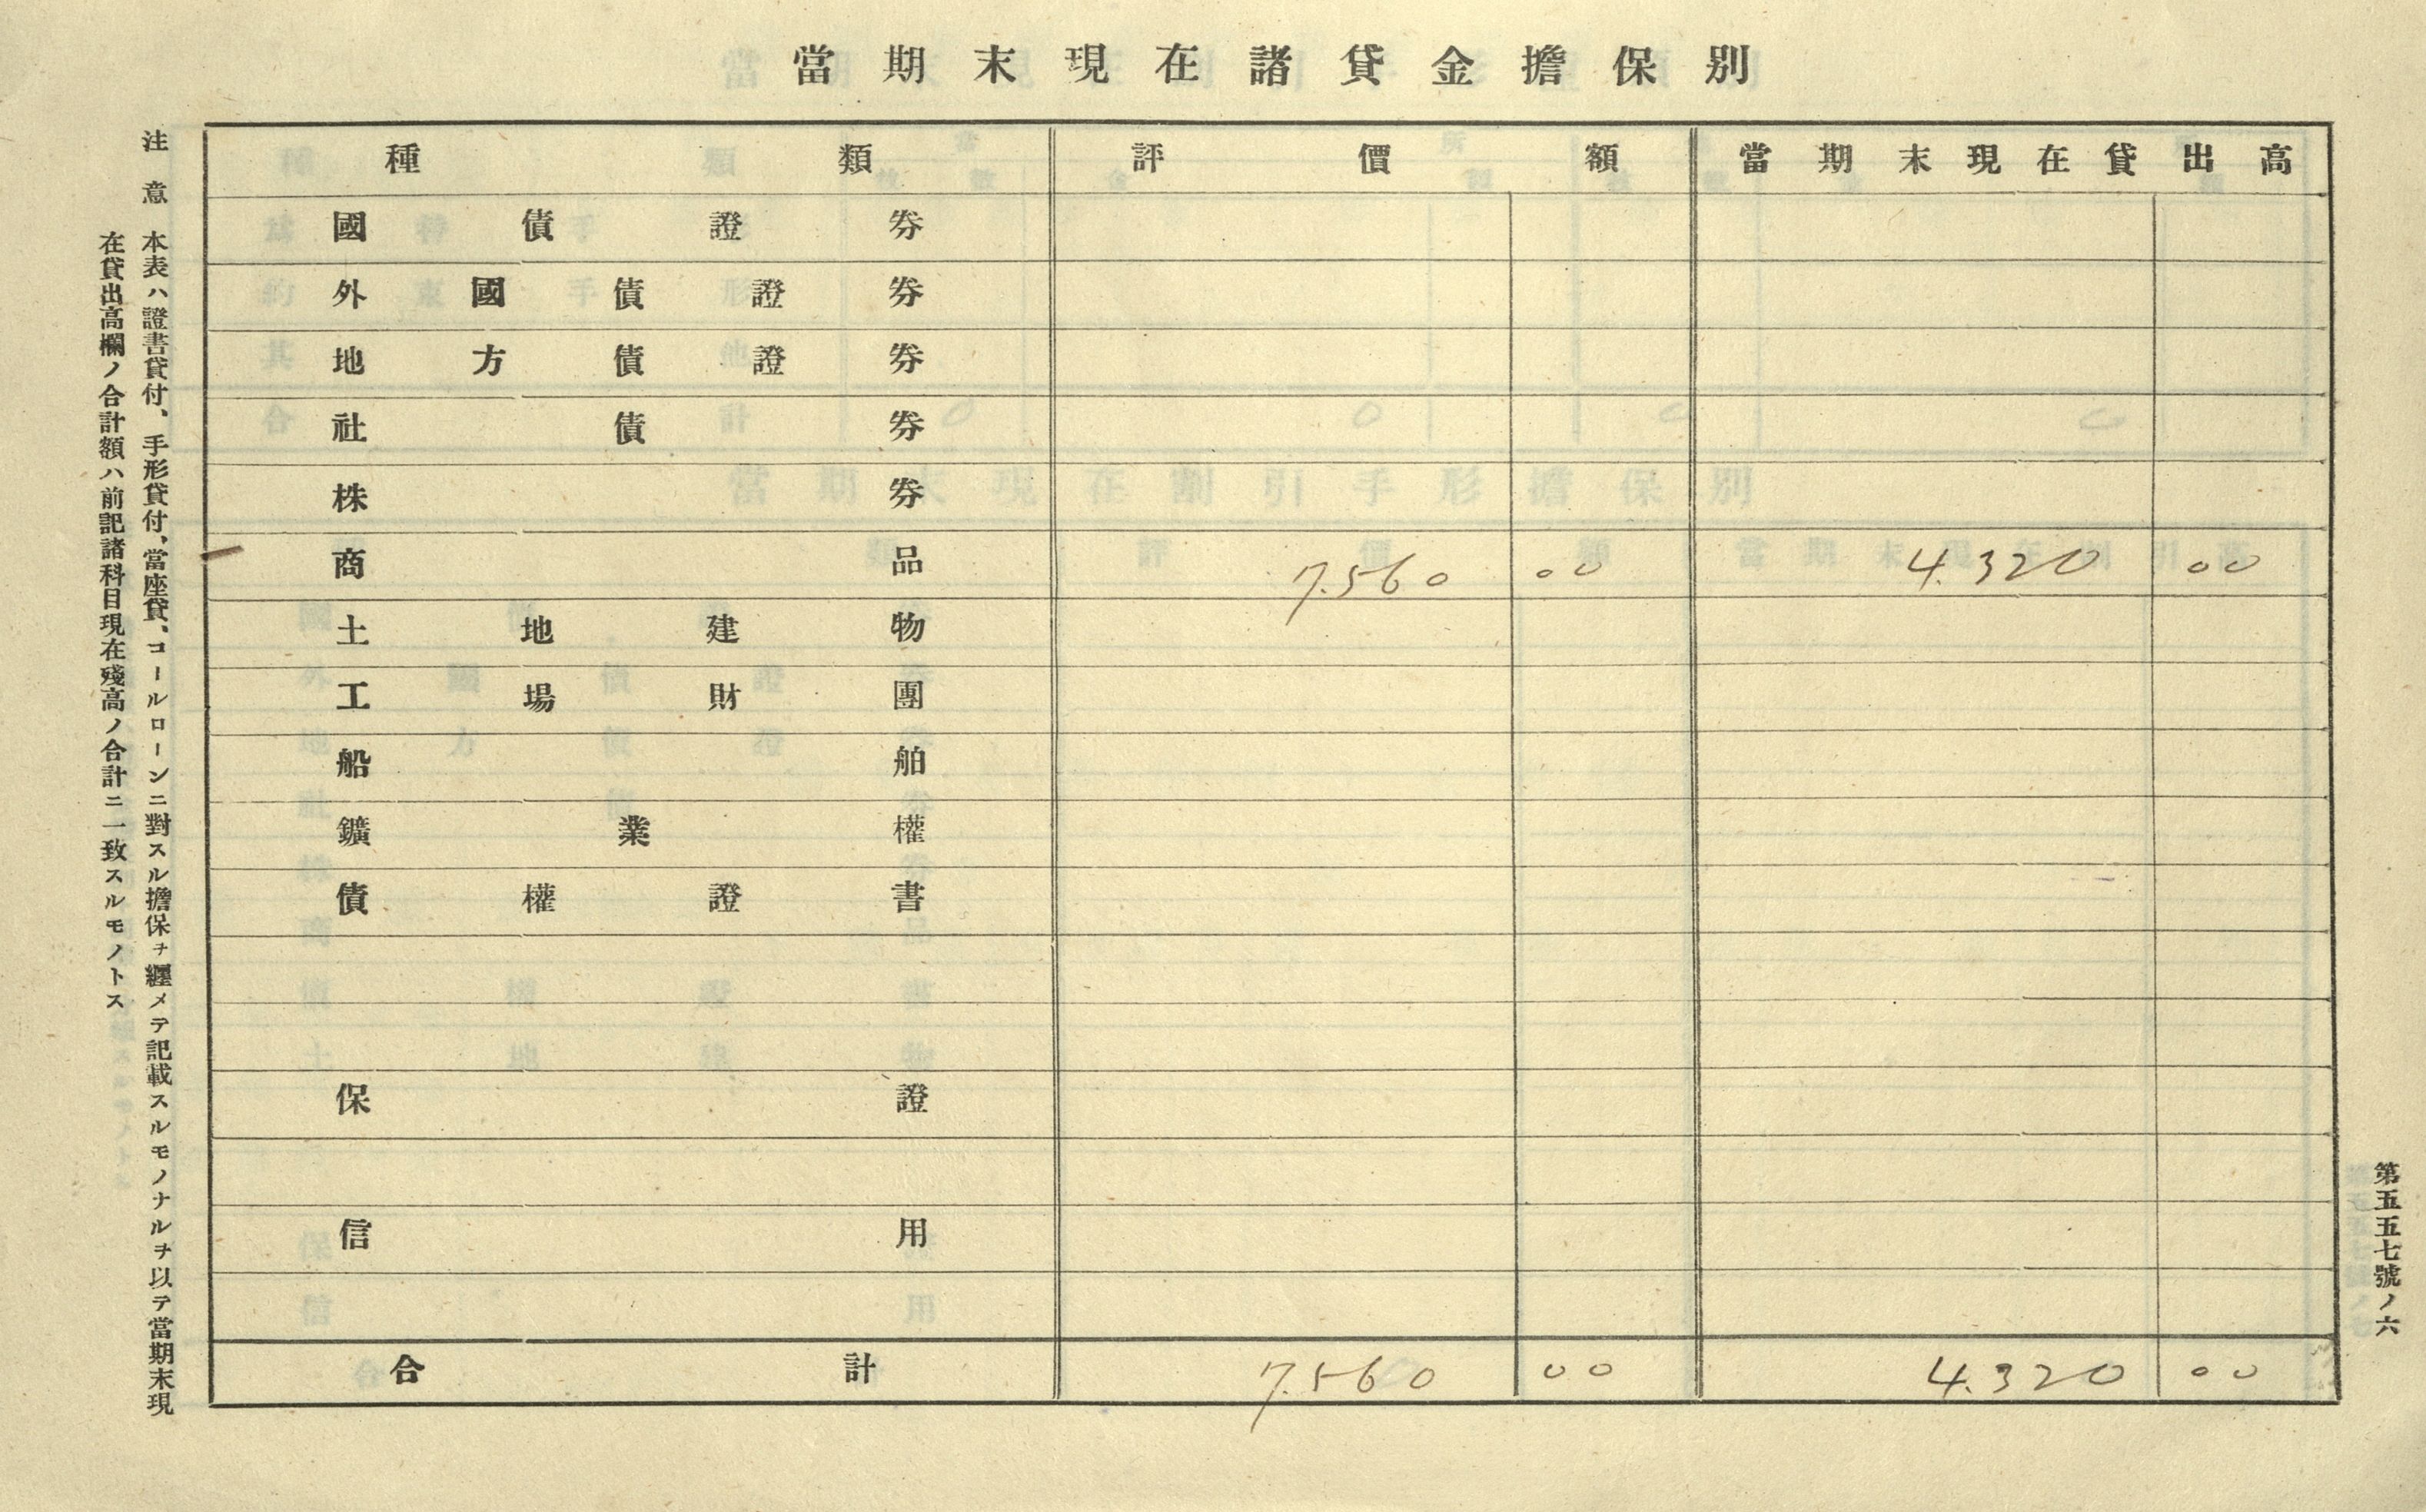 當期末現在諸貸金擔保別
種類 評價額 當期末現在貸出高
國債證券
外國債證券
地方債證券
社債券
株券
商品 7.560 00 4.320 00
土地建物
工場財團
船舶
鑛業權
債權證書
保證
信用
合計 7.560 00 4.320 00
注意 本表ハ證書貸付、手形貸付、當座貸、コールローンニ對スル擔保ヲ纒メテ記載スルモノナルヲ以テ當期末現
在貸出高欄ノ合計額ハ前記諸科目現在殘高ノ合計ニ一致スルモノトス
第五五七號ノ六